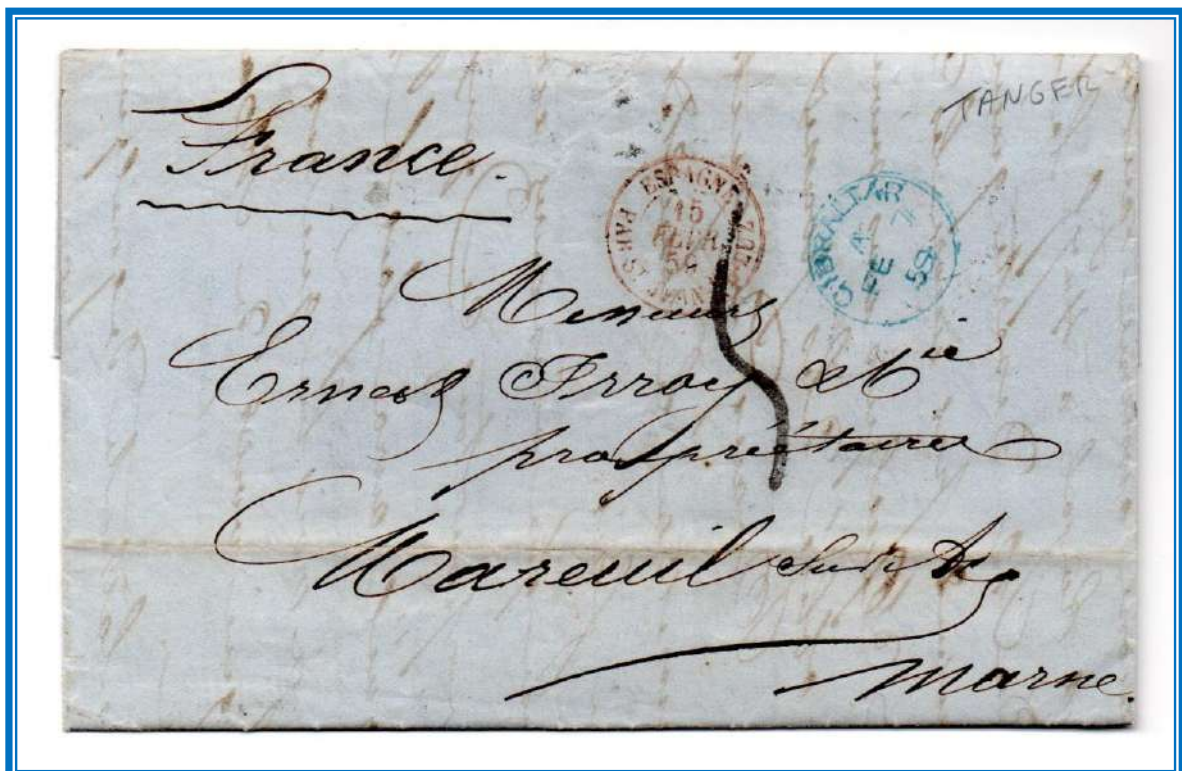 TANGER
France.
ESPAGNE
15
FEVR
59
GIBRALTAR
A
FE 7
59
Messieurs
Ernest Irroy & Cie
propriétaires
Mareuil sur Ay
Marne